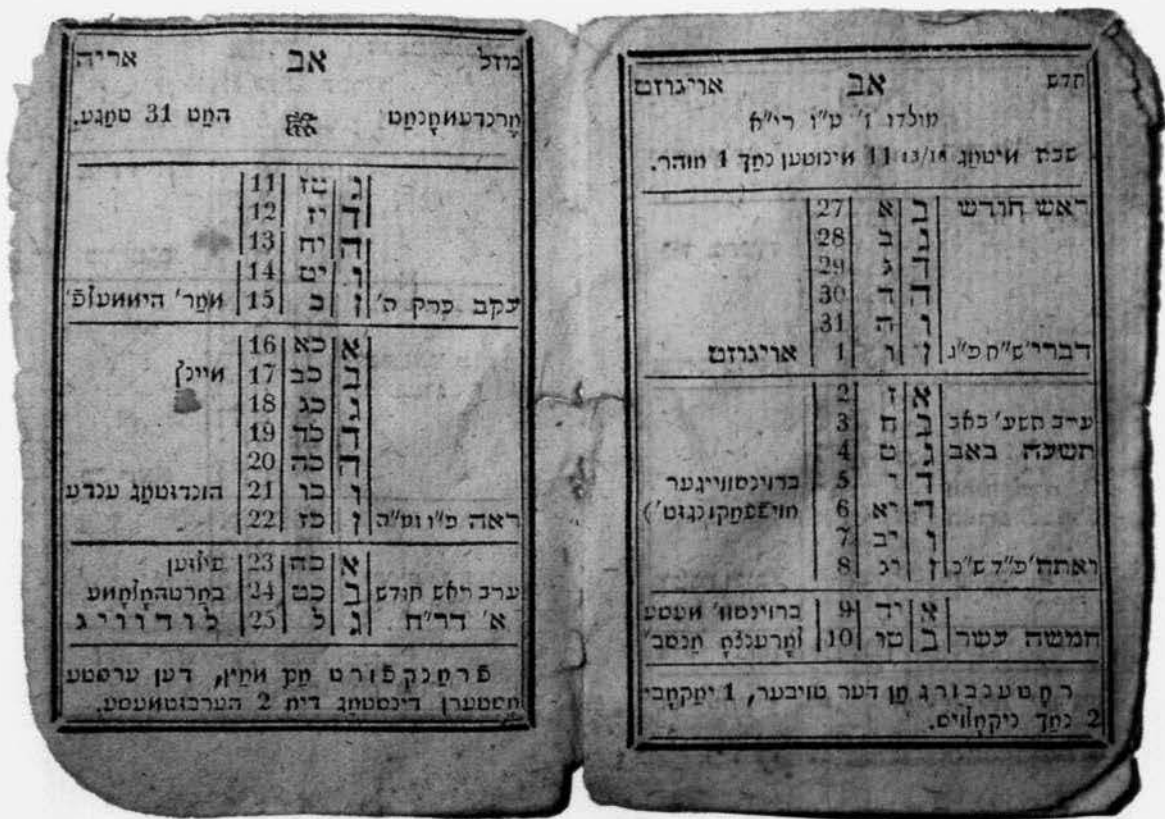 חדש אב אויגוזט
מולדו ז' ט"ו רי"א
שבת מיטאַג 13/18 11 מינוטען נאַך 1 אוהר.
ראש חודש ב א 27
ג ב 28
ד ג 29
ה ד 30
ו ה 31
דברי'ש"ח פ"ג ז ו 1 אויגוזט
א ז 2
ערב תשע' באב ב ח 3
תשעה באב ג ט 4
ד י 5 ברוינסווייגער
ה יא 6
ו יב 7
ואתח'פ"ד ש"נ ז יג 8
א יד 9 ברוינסוו' מעסע
חמשה עשר ב טו 10
ראָטענבורג אָן דער טויבער, 1 יאַקאָבי
2 נאַך ניקאָלויס.
מזל אב אריה
ערנדעמאָנאַט האַט 31 טאַגע.
ג טז 11
ד יז 12
ה יח 13
ו יט 14
עקב פרק ה' ז כ 15 מאַר' היממעלפ'
א כא 16
ב כב 17 מיינץ
ג כג 18
ד כד 19
ה כה 20
ו כו 21 הונדסטאַג ענדע
ראה פ"ו ומ"ה ז כז 22
א כח 23
ערב ראש חודש ב כט 24 באַרטהאָלאָמע
א' דר"ח ג ל 25 לודוויג
פראַנקפורט אַם מאַין, דען ערסטע
אָסטערן דינסטאַג דיא 2 הערבסטמעסע.